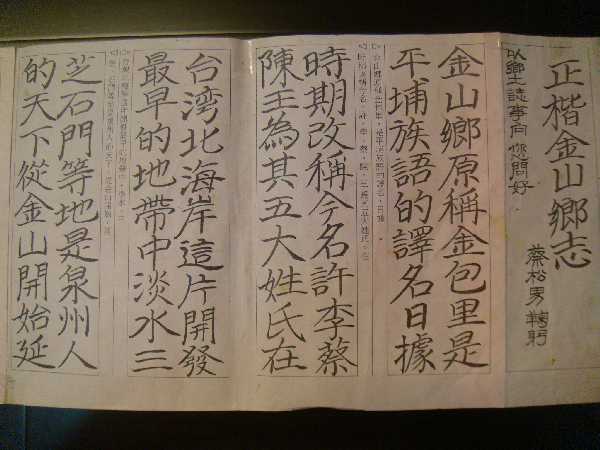 正楷金山鄉志
以鄉土誌事向您問好
蔡松男鞠躬
金山鄉原稱金包里是
平埔族語的譯名日據
時期改稱今名許李蔡
陳王為其五大姓氏在
台湾北海岸這片開發
最早的地帶中淡水三
芝石門等地是泉州人
的天下從金山開始延